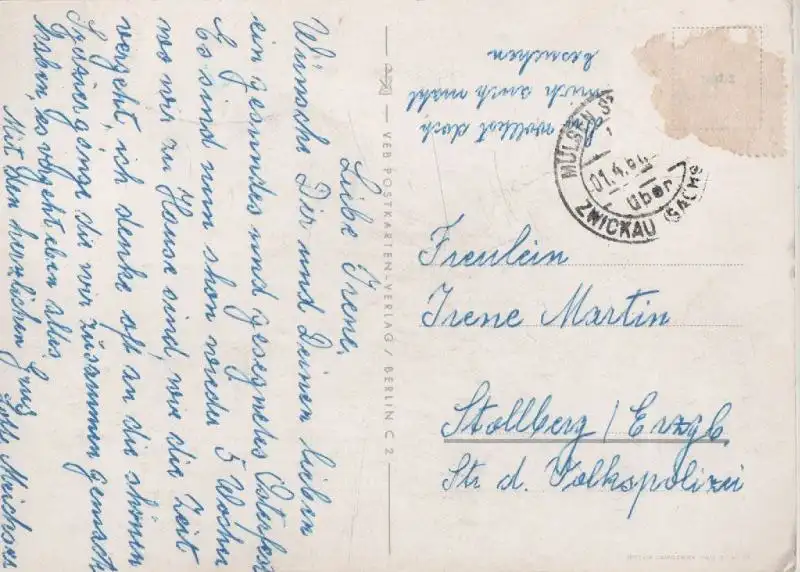 Liebe Irene,
Wünsche Dir und Deinen lieben
ein gesundes und gesegnetes Osterfest
Es sind nun schon wieder 5 Wochen
wo wir zu Hause sind, wie die Zeit
vergeht, ich denke oft an die schönen
Spaziergänge die wir zusammen gemacht
haben, es vergeht eben alles
Mit den herzlichen Gruß
Du wolltest doch
mich auch mahl
besuchen
VEB POSTKARTEN-VERLAG / BERLIN C 2
MÜLSEN
01.4.
über
ZWICKAU (SACHS
Freulein
Irene Martin
Stollberg / Erzgb.
Str. d. Volkspolizei